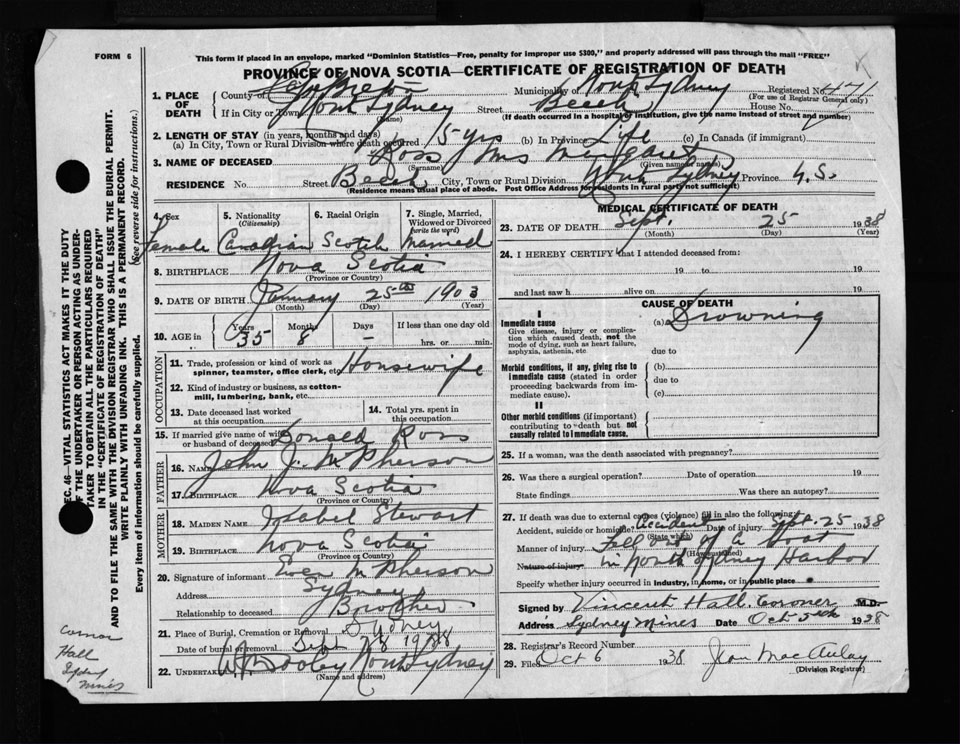 FORM 6
This form if placed in an envelope, marked "Dominion Statistics—Free, penalty for improper use $300," and properly addressed will pass through the mail "FREE"
PROVINCE OF NOVA SCOTIA—CERTIFICATE OF REGISTRATION OF DEATH
1. PLACE OF DEATH
County of Cape Breton Municipality of North Sydney Registered No. 471
(For use of Registrar General only)
If in City or Town North Sydney Street Beech House No.
(Name) (If death occurred in a hospital or institution, give the name instead of street and number)
2. LENGTH OF STAY (in years, months and days)
(a) In City, Town or Rural Division where death occurred 15 yrs (b) In Province Life (c) In Canada (if immigrant)
3. NAME OF DECEASED Ross Mrs Margaret
(Surname) (Given name or names)
RESIDENCE No. Street Beech City, Town or Rural Division North Sydney Province N.S.
(Residence means usual place of abode. Post Office Address for residents in rural parts not sufficient)
4. Sex 5. Nationality 6. Racial Origin 7. Single, Married, Widowed or Divorced
(Citizenship) (write the word)
Female Canadian Scotch Married
8. BIRTHPLACE Nova Scotia
(Province or Country)
9. DATE OF BIRTH January 25th 1903
(Month) (Day) (Year)
10. AGE in Years Months Days If less than one day old
35 8 – hrs. or min.
OCCUPATION
11. Trade, profession or kind of work as spinner, teamster, office clerk, etc. Housewife
12. Kind of industry or business, as cotton-mill, lumbering, bank, etc.
13. Date deceased last worked at this occupation
14. Total yrs. spent in this occupation
15. If married give name of wife or husband of deceased Donald Ross
FATHER
16. NAME John J. McPherson
17. BIRTHPLACE Nova Scotia
(Province or Country)
MOTHER
18. MAIDEN NAME Isabel Stewart
19. BIRTHPLACE Nova Scotia
(Province or Country)
20. Signature of informant Ewen McPherson
Address Sydney
Relationship to deceased Brother
21. Place of Burial, Cremation or Removal Sydney
Date of burial or removal Sept 28 1938
22. UNDERTAKER North Sydney
(Name and address)
MEDICAL CERTIFICATE OF DEATH
23. DATE OF DEATH Sept. 25 1938
(Month) (Day) (Year)
24. I HEREBY CERTIFY that I attended deceased from:
19 to 19
and last saw h alive on 19
CAUSE OF DEATH
I
Immediate cause (a) Drowning
Give disease, injury or complication which caused death, not the mode of dying, such as heart failure, asphyxia, asthenia, etc
due to
Morbid conditions, if any, giving rise to immediate cause (stated in order proceeding backwards from immediate cause). (b)
due to
(c)
II
Other morbid conditions (if important) contributing to death but not causally related to immediate cause.
25. If a woman, was the death associated with pregnancy?
26. Was there a surgical operation? Date of operation 19
State findings Was there an autopsy?
27. If death was due to external causes (violence) fill in also the following:
Accident, suicide or homicide? Accident Date of injury Sept. 25 1938
(State which)
Manner of injury Fell out of a boat
(How sustained)
Nature of injury in North Sydney Harbor
Specify whether injury occurred in industry, in home, or in public place
Signed by Vincent Hall, Coroner M.D.
Address Sydney Mines Date Oct 5th 1938
28. Registrar's Record Number
29. Filed Oct 6 1938 Jean MacAulay
(Division Registrar)
SEC. 46—VITAL STATISTICS ACT MAKES IT THE DUTY
OF THE UNDERTAKER OR PERSON ACTING AS UNDER-
TAKER TO OBTAIN ALL THE PARTICULARS REQUIRED
IN THE "CERTIFICATE OF REGISTRATION OF DEATH"
AND TO FILE THE SAME WITH THE DIVISION REGISTRAR WHO SHALL ISSUE THE BURIAL PERMIT.
WRITE PLAINLY WITH UNFADING INK. THIS IS A PERMANENT RECORD.
Every item of information should be carefully supplied. (See reverse side for instructions.)
Hall
Sydney
Mines